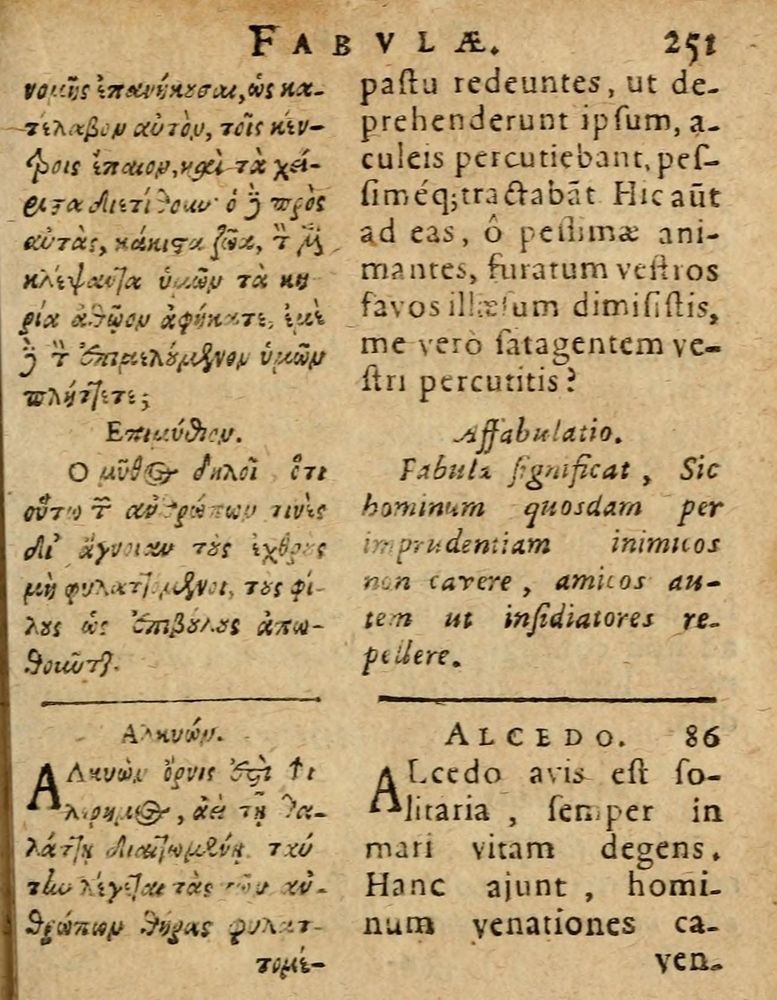 FABVLÆ. 251
νομῆς ἐπανήκουσαι, ὡς κα-
τέλαβον αὐτὸν, τοῖς κέν-
τροις ἔπαιον, καὶ τὰ χεί-
ριστα διετίθουν· ὁ δὲ πρὸς
αὐτὰς, κάκιστα ζῶα, τὸν μὲν
κλέψαντα ὑμῶν τὰ κη
ρία ἀθῶον ἀφήκατε, ἐμὲ
δὲ τὸν ἐπιμελούμενον ὑμῶν
πλήττετε;
Επιμύθιον.
Ο μῦθος δηλοῖ ὅτι
οὕτω τῶν ἀνθρώπων τινὲς
δι' ἄγνοιαν τοὺς ἐχθροὺς
μὴ φυλαττόμενοι, τοὺς φί-
λους ὡς ἐπιβούλους ἀπω-
θοῦνται.
Αλκυών.
ΑΛκυὼν ὄρνις ἐστὶ φι
λέρημος, ἀεὶ τῇ θα-
λάττῃ διαιτωμένη. ταύ
την λέγεται τὰς τῶν ἀν-
θρώπων θήρας φυλατ-
τομέ-
pastu redeuntes, ut de-
prehenderunt ipſum, a-
culeis percutiebant, peſ-
ſiméq; tractabāt Hic aūt
ad eas, ô peſſimæ ani-
mantes, furatum veſtros
favos illæſum dimiſiſtis,
me verò ſatagentem ve-
ſtri percutitis?
Affabulatio.
Fabula ſignificat, Sic
hominum quosdam per
imprudentiam inimicos
non cavere, amicos au-
tem ut inſidiatores re-
pellere.
ALCEDO. 86
ALcedo avis eſt ſo-
litaria, ſemper in
mari vitam degens.
Hanc ajunt, homi-
num venationes ca-
ven-